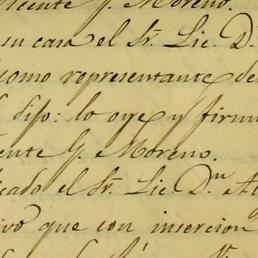 Vicente G. Moreno.
su casa el Sr. Lic. D.
como representante de
dijo: lo oye y firm
ente G. Moreno.
cado el Sr. Lic Dn A
ivo que con insercion